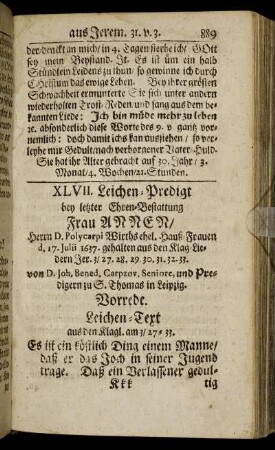 aus Jerem. 31. v. 3. 889
der-denckt an mich/ in 4. Tagen sterbe ich! GOtt
sey mein Beystand. It. Es ist um ein halb
Stündlein Leidens zu thun/ so gewinne ich durch
Christum das ewige Leben. Bey ihrer grösten
Schwachheit ermunterte Sie sich unter andern
wiederholten Trost-Reden/ und sang aus dem be-
kannten Liede: Ich bin müde mehr zu leben
ꝛc. absonderlich diese Worte des 9. v. gantz vor-
nemlich: doch damit ichs kan ausstehen/ so ver-
leyhe mir Gedult/ nach verborgener Vater-Huld.
Sie hat ihr Alter gebracht auf 30. Jahr/ 3.
Monat/ 4. Wochen/ 21. Stunden.
XLVII. Leichen-Predigt
bey letzter Ehren-Bestattung
Frau ANNEN/
Herrn D. Polycarpi Wirths ehel. Hauß Frauen
d. 17. Julii 1637. gehalten aus den Klag-Lie-
dern Jer. 3/ 27. 28. 29. 30. 31. 32. 33.
von D. Joh. Bened. Carpzov, Seniore, und Pre-
digern zu S. Thomas in Leipzig.
Vorrede.
Leichen-Text
aus den Klagl. am 3/ 27-33.
Es ist ein köstlich Ding einem Manne/
daß er das Joch in seiner Jugend
trage. Daß ein Verlassener gedul-
Kkk tig